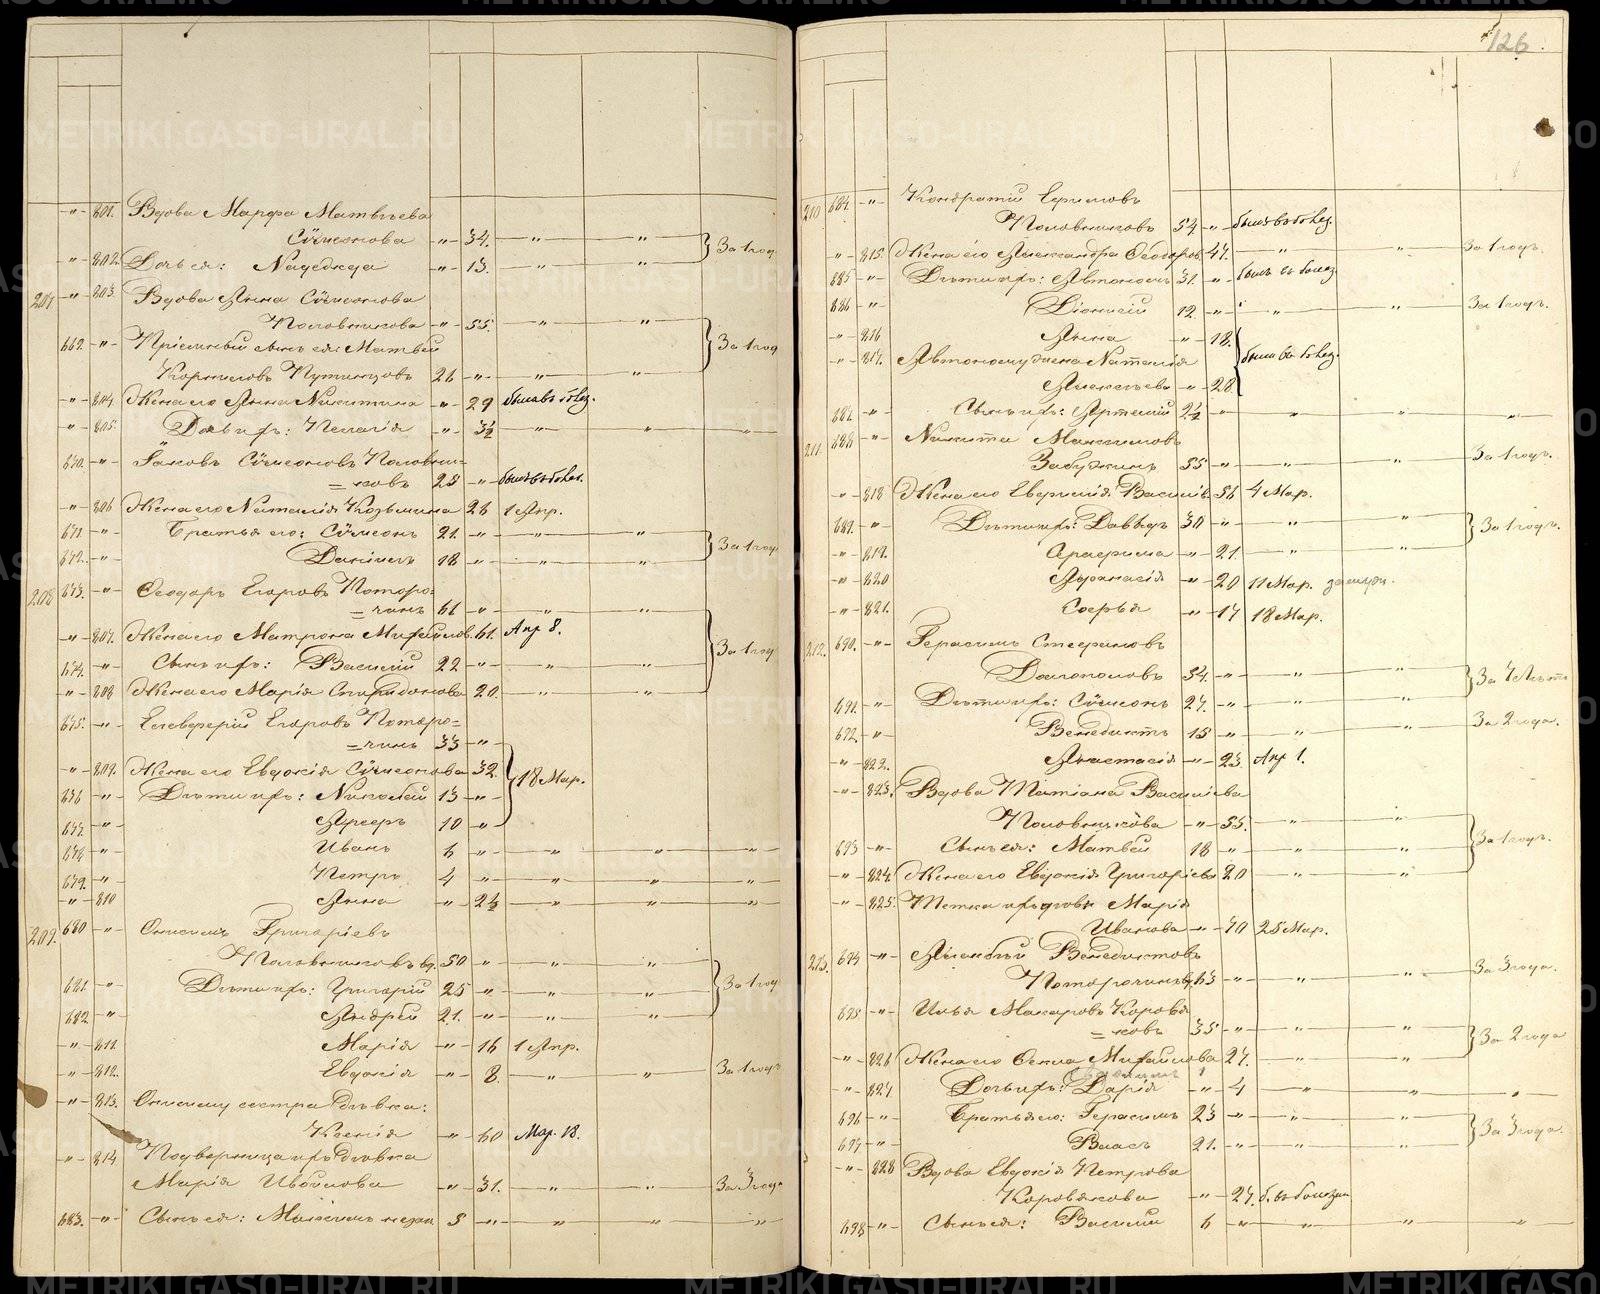 126
" 801. Вдова Марѳа Матвѣева
Сѵмеонова " 34. " " За 1 год
" 802. Дочь ея: Надежда " 13. " "
207 " 803 Вдова Анна Сѵмеонова
Половникова " 55. " " За 1 год
669. " Пріемный сынъ ея: Матвей
Корниловъ Путинцовъ 26 " " "
" 804 Жена его Анна Никитина " 29 была въ болез.
" 805. Дочь ихъ: Пелагія " 3½ " " "
670. " Іаковъ Сѵмеоновъ Половни=
=ковъ 28 " былъ въ болез.
" 806 Жена его Наталія Козьмина " 26 1 Апр.
671 " Братья его: Сѵмеонъ 21. " " " За 1 год
672. " Даніилъ 18 " " "
208 673. " Ѳеодоръ Егоровъ Поторо=
=чинъ 61 " " "
" 807. Жена его Матрона Михайлов. 61. Апр 8.
674. " Сынъ ихъ: Василий 22 " " " За 1 год
" 808 Жена его Марія Спиридонова 20. " "
675. " Елевферій Егоровъ Поторо=
=чинъ 33 "
" 809. Жена его Евдокія Сѵмеонова 32. 18 Мар.
676 " Дѣти ихъ: Николай 13 "
677. " 10 "
678 " Иванъ 6 " " " "
679. " Петръ 4 " " " "
" 810 Анна " 2½ " " "
209. 680 " Онисимъ Григоріевъ
Половниковъ вд. 50 " " "
681. " Дѣти ихъ: Григорій 25 " " " За 1 год
682 " Андрей 21. " " "
" 811 Марія " 16 1 Апр.
" 812. Евдокія " 8. " " За 1 годъ
" 813. Онисиму сестра дѣвка:
Ксенія " 60 Мар. 18.
" 814 Подворница ихъ дѣвка
Марія Ивойлова " 31. " " За 3 года
683. " Сынъ ея: Максимъ незак 5 " " " "
210 684. " Кондратій Ефимовъ
Половниковъ 54 " былъ въ болез.
" 815. Жена его Александра Ѳеодоров. 47. " " За 1 годъ.
685 " Дѣти ихъ: Автономъ 31. " былъ въ болез.
686 " Діонисій 12. " " " За 1 годъ.
" 816 Анна " 18.
" 817. Автоному жена Наталія была въ болез.
Алексѣева " 28
687. " Сынъ ихъ: Артемій 2½ " " " "
211. 688 " Никита Максимовъ
35 " " " За 1 годъ.
" 818 Жена его Евгенія Василь. 56 4 Мар.
689. " Дѣти ихъ: Давыдъ 30 " " " За 1 годъ.
" 819. Серафима " 21. " "
" 820 Аѳанасія " 20 11 Мар. замуж.
" 821. Софья " 17 18 Мар.
212. 690. " Герасимъ Стефановъ
Долгополовъ 54. " " " За 7 лѣтъ
691. " Дѣти ихъ: Сѵмеонъ 27. " " "
692. " Венедиктъ 15 " " За 2 года.
" 822. Анастасія " 23. Апр 1.
" 823. Вдова Татіана Васильева
Половникова " 55. " " За 1 годъ.
693 " Сынъ ея: Матвей 18 " " "
" 824. Жена его Евдокія Григоріева 20 " "
" 825. Тетка ихъ вдова Марія
Иванова " 70 25 Мар.
213. 694 " Венедиктовъ
Поторочинъ 63 " " " За 3 года.
695 " Илья Макаровъ Коровя
=ковъ 35 " " " За 2 года
" 826 Жена его Ѳекла Михайлова 27. " "
" 827 Дочь ихъ: Дарія " 4 " " "
696 " Братья его: Герасимъ 23 " " " За 3 года.
697 " Власъ 21. " " "
" 828 Вдова Евдокія Петрова
Коровякова " 27. б. въ болезни
698 " Сынъ ея: Василій 6 " " " "
METRIKI.GASO-URAL.RU